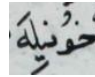 خُونِيلَهَ